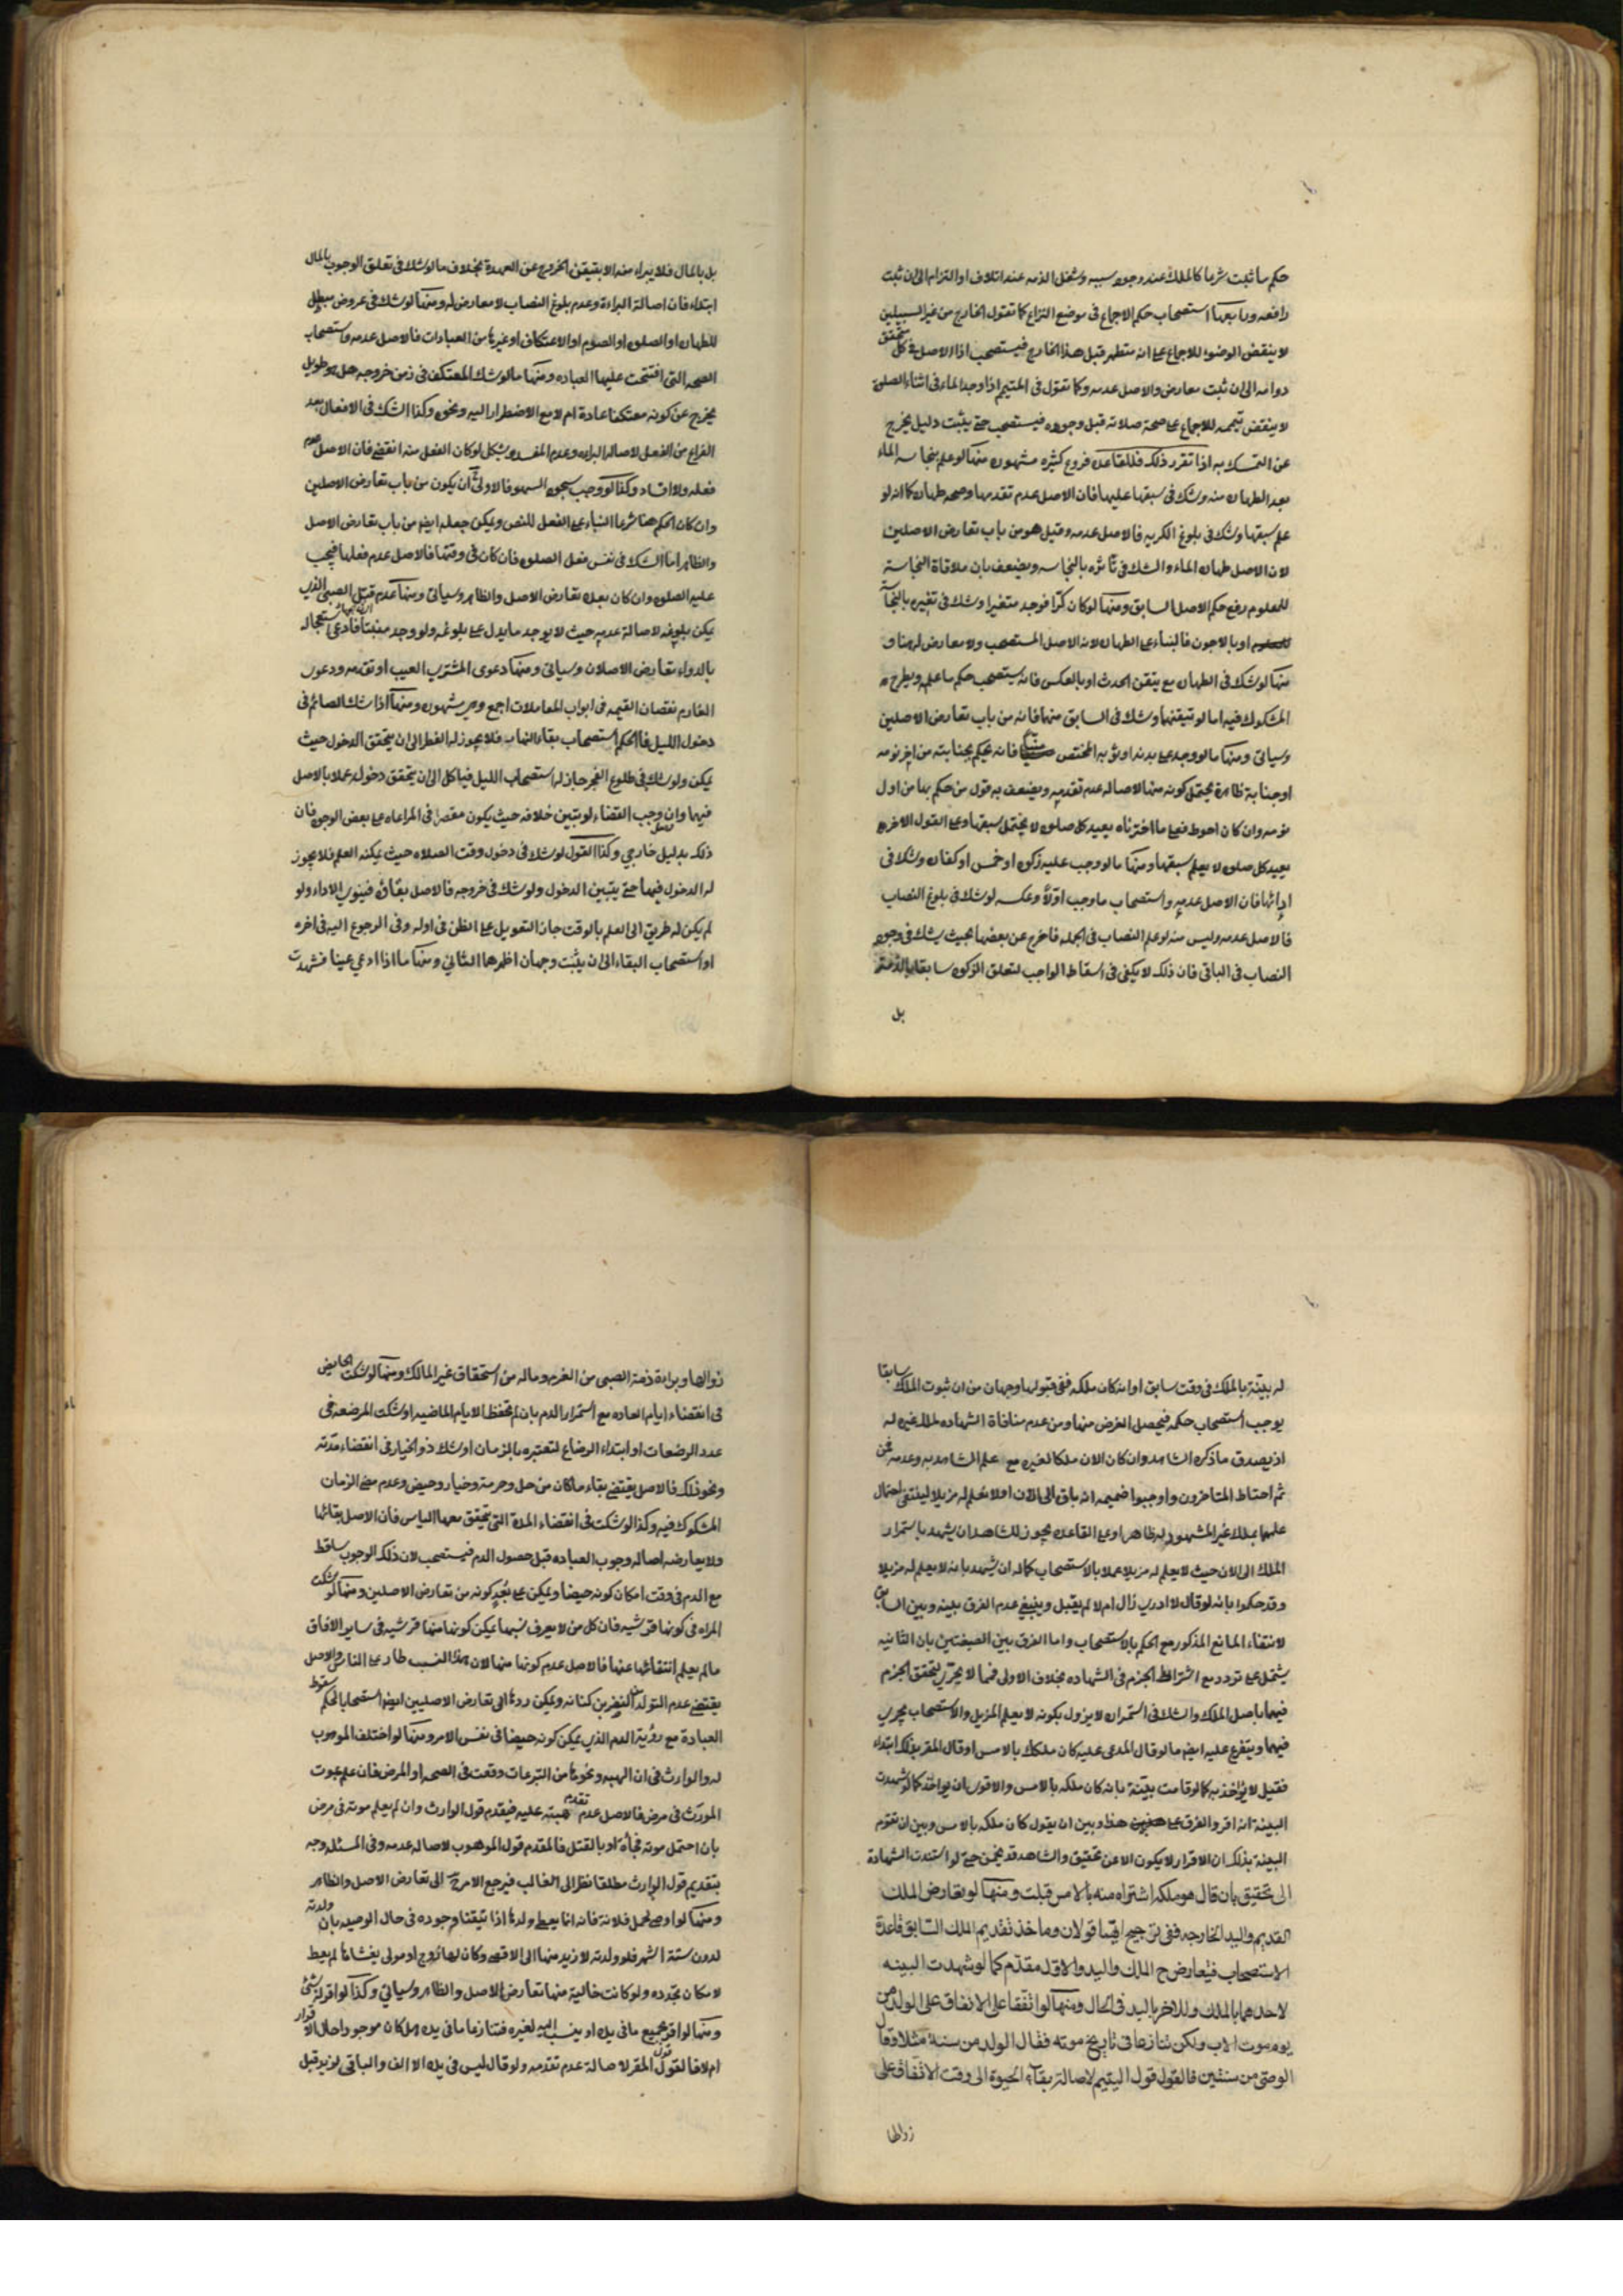 حكم ما ثبت شرعا كالملك عند وجود سببه وشغل الذمه عند اتلاف او التزام الى ان ثبت
رافعه ورابعها استصحاب حكم الاجماع في موضع النزاع كما تقول الخارج من غير السبيلين
لا ينقض الوضوء للاجماع على انه متطهر قبل هذا الخارج فيستصحب اذ الاصل في كل متحقق
دوامه الى ان ثبت معارض والاصل عدمه وكما تقول في المتيمم اذا وجد الماء في اثناء الصلوة
لا ينقض تيممه للاجماع على صحة صلاته قبل وجوده فيستصحب حتى يثبت دليل يخرج
عن التمسك به اذا تقرر ذلك فللقاعدة فروع كثيره مشهوره منها لو علم بنجاسه الماء
بعد الطهاره منه وشك في سبقها عليها فان الاصل عدم تقدمها وصحه طهارته كما انه لو
علم سبقها وشك في بلوغ الكريه فالاصل عدمه وقيل هو من باب تعارض الاصلين
لان الاصل طهارة الماء والشك في تاثره بالنجاسه ويضعف بان ملاقاة النجاسة
للمعلوم رفع حكم الاصل السابق ومنها لو كان كرا فوجد متغيرا وشك في تغيره بالنجاسة
او بالاجون فالبناء على الطهاره لانه الاصل المستصحب ولا معارض له هنا و
منها لو شك في الطهاره مع تيقن الحدث او بالعكس فانه يستصحب حكم ما علمه ويطرح
المشكوك فيه اما لو تيقنهما وشك في السابق منهما فانه من باب تعارض الاصلين
وسياتي ومنها ما لو وجد على بدنه او ثوبه المختص منيا فانه يحكم بجنابته من اخر نومه
او جنابة ظاهرة يحتمل كونه منها لاصاله عدم تقدمه ويضعف به قول من حكم بها من اول
نومه وان كان احوط فعلى ما اخترناه يعيد كل صلوة لا يحتمل سبقها وعلى القول الاخر
يعيد كل صلوة لا يعلم سبقها ومنها ما لو وجب عليه زكوة او خمس او كفارة وشك في
ادائها فان الاصل عدمه واستصحاب ما وجب اولا وعكسه لو شك في بلوغ النصاب
فالاصل عدمه وليس منه لو علم النصاب في الجمله فاخرج عن بعضها بحيث يشك في وجود
النصاب في الباقي فان ذلك لا يكفي في اسقاط الواجب لتعلق الزكوة سابقا بالذمة
بل
بل بالمال فلا يبراء منه الا بتيقن الخروج عن العهدة بخلاف ما لو شك في تعلق الوجوب بالمال
ابتداء فان اصالة البراءة وعدم بلوغ النصاب لا معارض له ومنها لو شك في عروض مبطل
للطهارة او الصلوة او الصوم او الاعتكاف او غيرها من العبادات فالاصل عدمه واستصحاب
الصحه التي افتتحت عليها العباده ومنها ما لو شك المعتكف في زمن خروجه هل هو طويل
يخرج عن كونه معتكفا عادة ام لا مع الاضطرار اليه ونحوه وكذا الشك في الافعال بعد
الفراغ من الفعل لاصاله البراءه وعدم المفسده ويشكل لو كان الفعل منه انقضى فان الاصل عدم
فعله ولا افساد وكذا لو وجب سجود السهو فالاولى ان يكون من باب تعارض الاصلين
وان كان الحكم هنا شرعا البناء على الفعل للنص ويمكن جعله ايضا من باب تعارض الاصل
والظاهر اما الشك في نفس فعل الصلوة فان كان في وقتها فالاصل عدم فعلها فيجب
عليه الصلوة وان كان بعده تعارض الاصل والظاهر وسياتي ومنها عدم قتل الصبي الذي
يمكن بلوغه لاصالة عدمه حيث لا يوجد ما يدل على بلوغه ولو وجد منبتا فادعى استعجاله
بالدواء تعارض الاصلان وسياتي ومنها دعوى المشتري العيب او تقدمه ودعوى
الغارم نقصان القيمه في ابواب المعاملات اجمع وهي مشهوره ومنها اذا شك الصائم في
دخول الليل فالحكم استصحاب بقاء النهار فلا يجوز له الفطر الى ان يتحقق الدخول حيث
يمكن ولو شك في طلوع الفجر جاز له استصحاب الليل فياكل الى ان يتحقق دخوله عملا بالاصل
فيهما وان وجب القضاء لو تبين خلافه حيث يكون مقصرا في المراعاه على بعض الوجوه فان
ذلك بدليل خارجي وكذا القول لو شك في دخول وقت الصلاه حيث يمكنه العلم فلا يجوز
له الدخول فيها حتى يتبين الدخول ولو شك في خروجه فالاصل بقاؤه فينوي الاداء ولو
لم يكن له طريق الى العلم بالوقت جاز التعويل على الظن في اوله وفي الرجوع اليه في اخره
او استصحاب البقاء الى ان يثبت وجهان اظهرهما الثاني ومنها ما اذا ادعي عينا فشهدت
له بينة بالملك في وقت سابق او انه كان ملكه ففي قبولها وجهان من ان ثبوت الملك سابقا
يوجب استصحاب حكمه فيحصل الغرض منها ومن عدم منافاة الشهاده لملك غيره له
اذ يصدق ما ذكره الشاهد وان كان الان ملكا لغيره مع علم الشاهد به وعدمه فمن
ثم احتاط المتاخرون واوجبوا ضميمه انه باق الى الان او لا نعلم له مزيلا لينتفي احتمال
علمها بملك غير المشهود له ظاهرا وعلى القاعده يجوز للشاهد ان يشهد باستمرار
الملك الى الان حيث لا يعلم له مزيلا عملا بالاستصحاب كما له ان يشهد بانه لا يعلم له مزيلا
وقد حكموا بانه لو قال لا ادري زال ام لا لم يقبل وينبغي عدم الفرق بينه وبين السابق
لانتفاء المانع المذكور مع الحكم بالاستصحاب واما الفرق بين الصيغتين بان الثانيه
يشتمل على تردد مع اشتراط الجزم في الشهاده بخلاف الاولى فمما لا يجري لتحقق الجزم
فيهما باصل الملك والشك في استمراره لا يزول بكونه لا يعلم المزيل والاستصحاب يجري
فيهما ويتفرع عليه ايضا ما لو قال المدعى عليه كان ملكك بالامس او قال المقر بذلك ابتداء
فقيل لا يؤاخذ به كما لو قامت بينة بانه كان ملكه بالامس والاقوى ان يؤاخذ كما لو شهدت
البينة انه اقر والفرق على هذا وبين ان يقول كان ملكه بالامس وبين ان تقوم
البينة بذلك ان الاقرار لا يكون الا عن تحقيق والشاهد قد يخمن حتى لو استندت الشهادة
الى تحقيق بان قال هو ملكه اشتراه منه بالامس قبلت ومنها لو تعارض الملك
القديم واليد الخارجه ففي ترجيح ايهما قولان وماخذ تقديم الملك السابق قاعدة
الاستصحاب فيتعارض ح الملك واليد والاول مقدم كما لو شهدت البينه
لاحدهما بالملك وللاخر باليد في الحال ومنها لو اتفقا على الانفاق على الولد من
يوم موت الاب ولكن تنازعا في تاريخ موته فقال الولد من سنة مثلا وقال
الوصي من سنتين فالقول قول اليتيم لاصالة بقاء الحيوة الى وقت الاتفاق على
زوالها
زوالها وبراءة ذمة الصبي من الغرم وماله من استحقاق غير المالك ومنها لو شكت الحايض
في انقضاء ايام العاده مع استمرار الدم بان لم تحفظ الايام الماضيه او شكت المرضعه في
عدد الرضعات او ابتداء الرضاع لتعتبره بالزمان او شك ذو الخيار في انقضاء مدته
ونحو ذلك فالاصل يقتضي بقاء ما كان من حل وحرمة وخيار وحيض وعدم مضي الزمان
المشكوك فيه وكذا لو شكت في انقضاء المدة التي يتحقق معها الياس فان الاصل بقائها
ولا يعارضه اصاله وجوب العباده قبل حصول الدم فيستصحب لان ذلك الوجوب ساقط
مع الدم في وقت امكان كونه حيضا ويمكن على بعد كونه من تعارض الاصلين ومنها لو شكت
المراه في كونها قرشيه فان كل من لا يعرف نسبها يمكن كونها منها قرشيه في ساير الافاق
ما لم يعلم انتفائها عنها فالاصل عدم كونها منها لان هذا النسب طار على الناس والاصل
يقتضي عدم التولد من النضر بن كنانه ويمكن ردها الى تعارض الاصليين ايضا استصحابا لحكم سقوط
العبادة مع رؤية الدم الذي يمكن كونه حيضا في نفس الامر ومنها لو اختلف الموهوب
له والوارث في ان الهبه ونحوها من التبرعات وقعت في الصحه او المرض فان علم بموت
المورث في مرض فالاصل عدم تقدم هبته عليه فيقدم قول الوارث وان لم يعلم موته في مرض
بان احتمل موته فجأة او بالقتل فالمقدم قول الموهوب لاصاله عدمه وفي المسئله وجه
بتقديم قول الوارث مطلقا نظرا الى الغالب فيرجع الامر ح الى تعارض الاصل والظاهر
ومنها لو اوصى لحمل فلانة فانه انما يعطى ولدها اذا تيقنا وجوده في حال الوصيه بان ولدته
لدون ستة اشهر فلو ولدته لازيد منها الى الاقصى وكان لها زوج او مولى يغشاها لم يعط
لامكان تجدده ولو كانت خالية منهما تعارض الاصل والظاهر وسياتي وكذا لو اقر له بشئ
ومنها لو اقر بجميع ما في يده او ينسب اليه لغيره فتنازعا ما في يده هل كان موجودا حال الاقرار
ام لا فالقول قول المقر لاصالة عدم تقدمه ولو قال ليس في يدى الا الف والباقي لزيد قبل